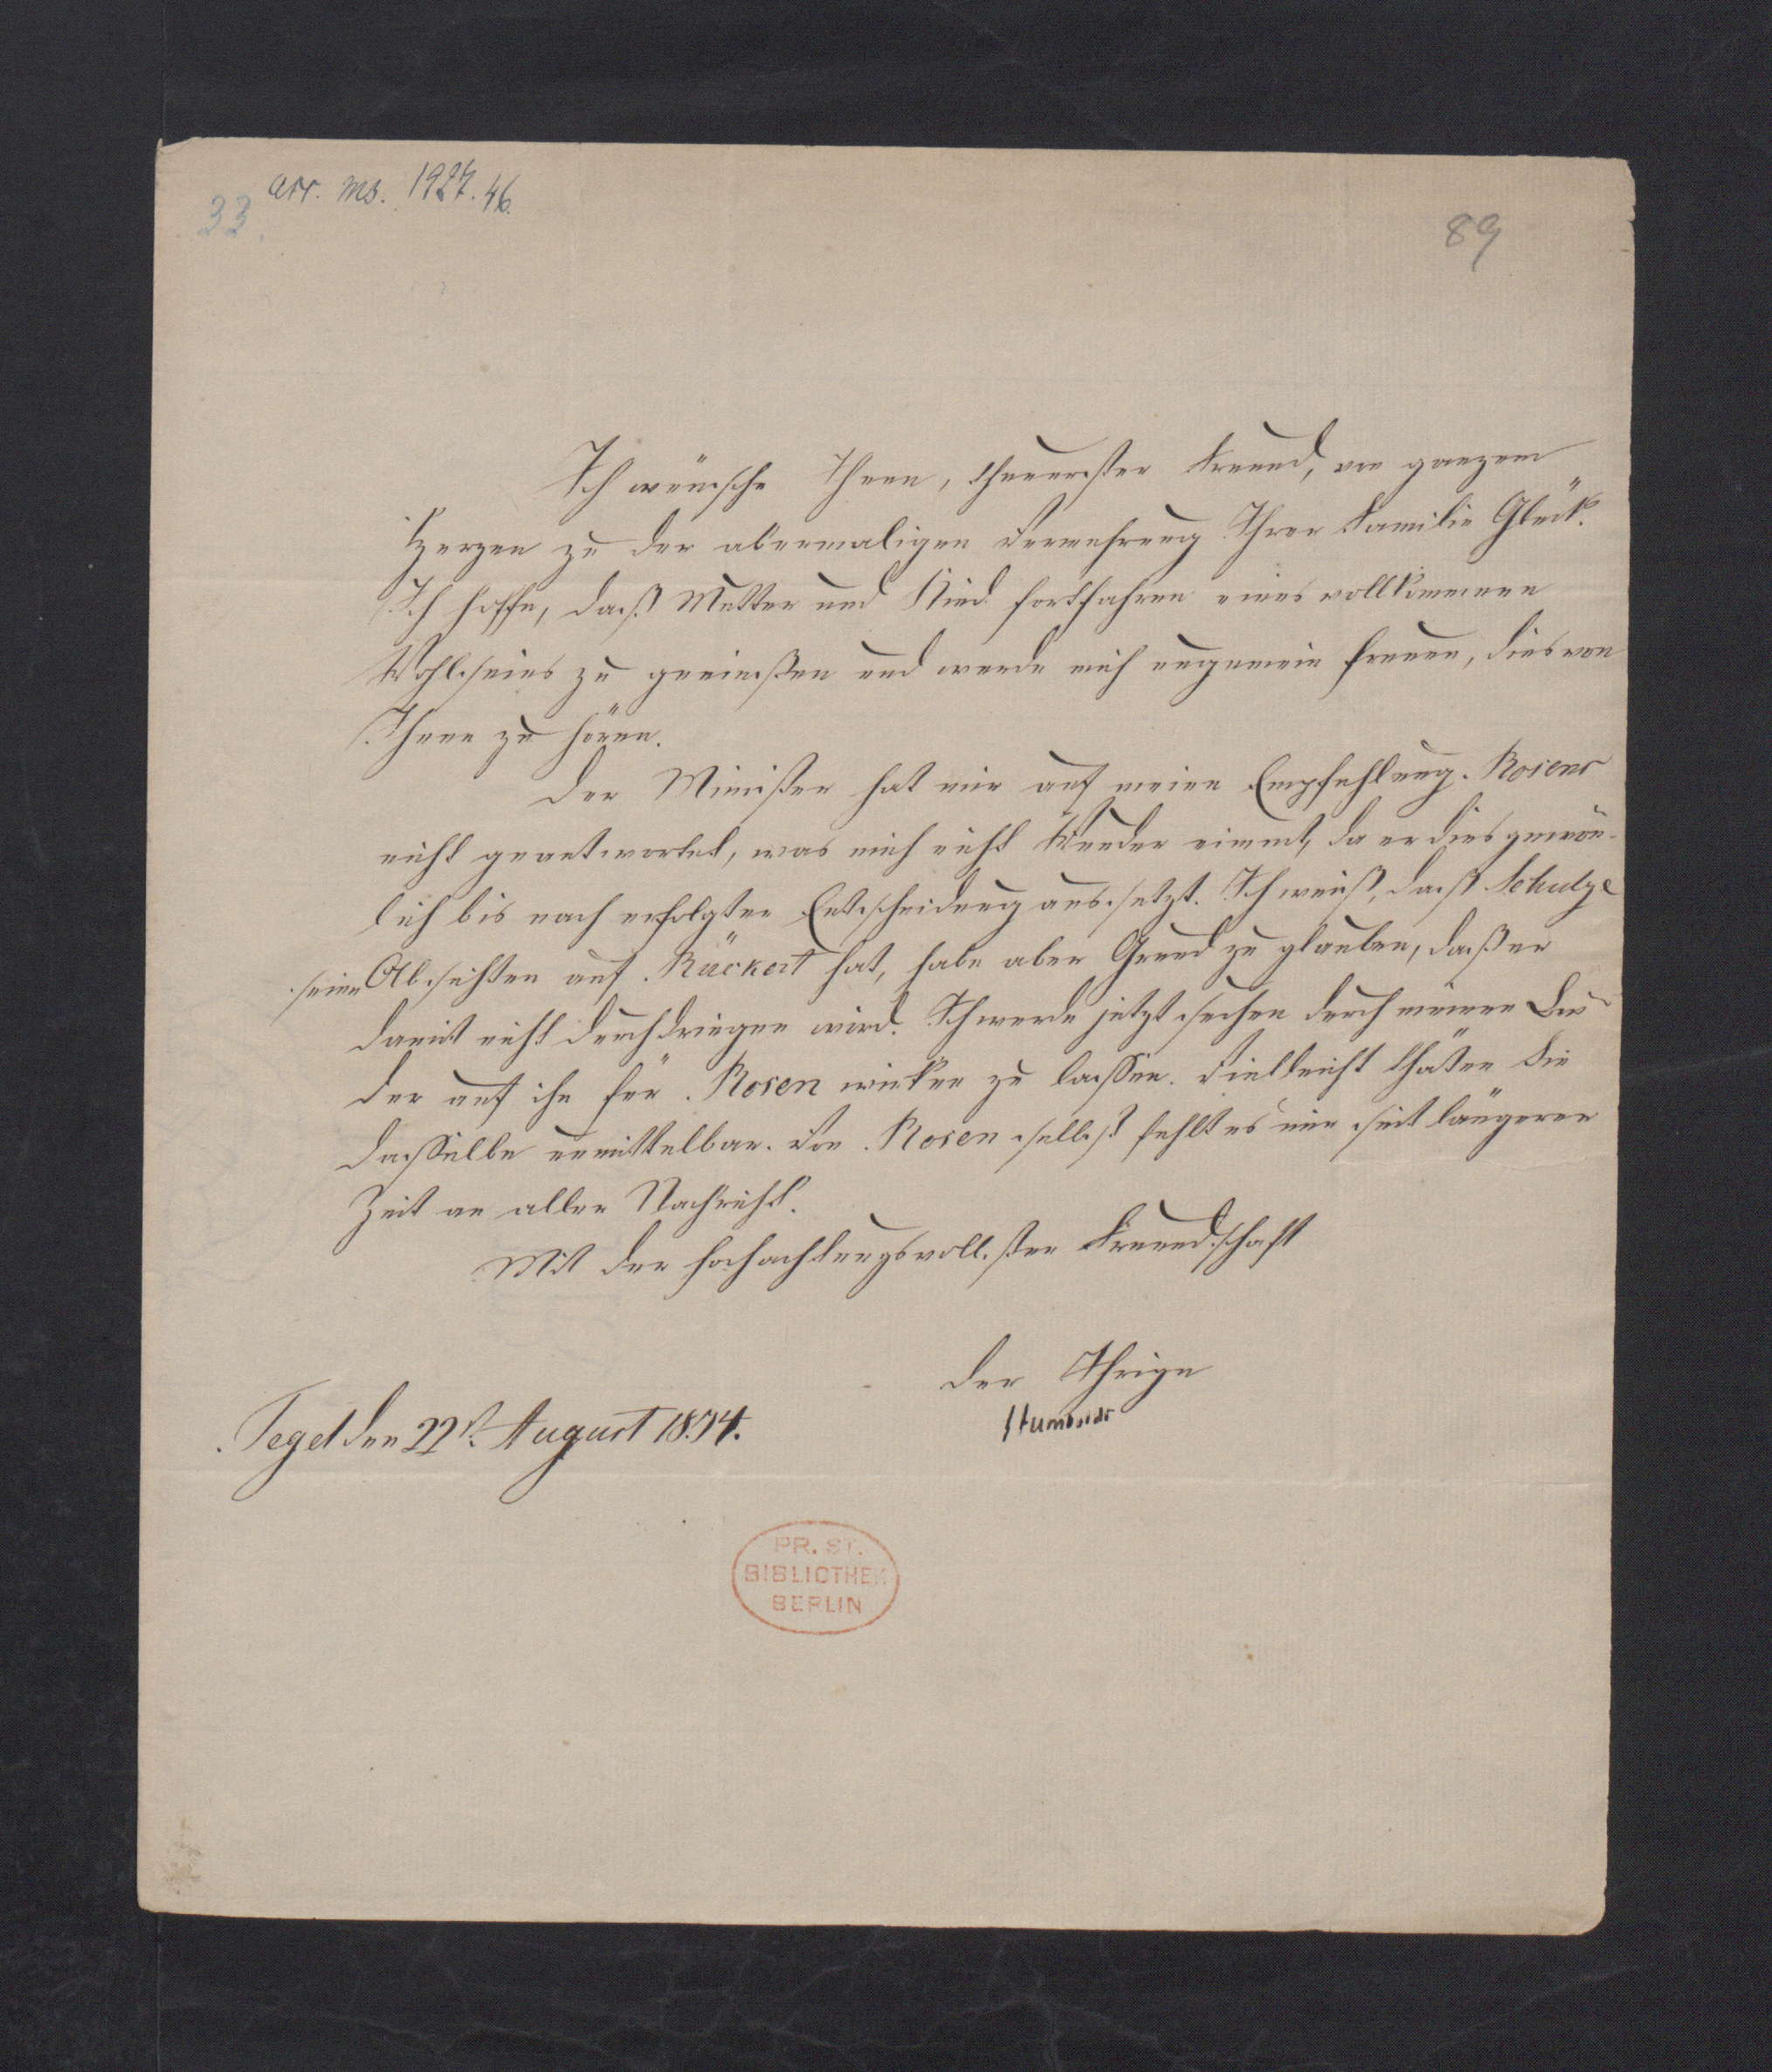 33.
acc. ms. 1927. 46.
89
Ich wünsche Ihnen, theuerster Freund, von ganzem
Herzen zu der abermaligen Vermehrung Ihrer Familie Glück.
Ich hoffe, daß Mutter und Kind fortfahren eines vollkommenen
Wohlseins zu genießen und werde mich ungemein freuen, dies von
Ihnen zu hören.
Der Minister hat mir auf meine Empfehlung Rosens
nicht geantwortet, was mich nicht Wunder nimmt, da er dies gewön-
lich bis nach erfolgter Entscheidung aussetzt. Ich weiß, daß Schulze
seine Absichten auf Rückert hat, habe aber Grund zu glauben, daß er
damit nicht durchdringen wird. Ich werde jetzt suchen durch meinen Bru
der auf ihn für Rosen wirken zu lassen. Vielleicht thäten Sie
dasselbe unmittelbar. Von Rosen selbst fehlt es mir seit längerer
Zeit an aller Nachricht.
Mit der hochachtungsvollsten Freundschaft
der Ihrige
Humboldt
Tegel den 22t. August 1834.
PR. ST.
BIBLIOTHEK
BERLIN